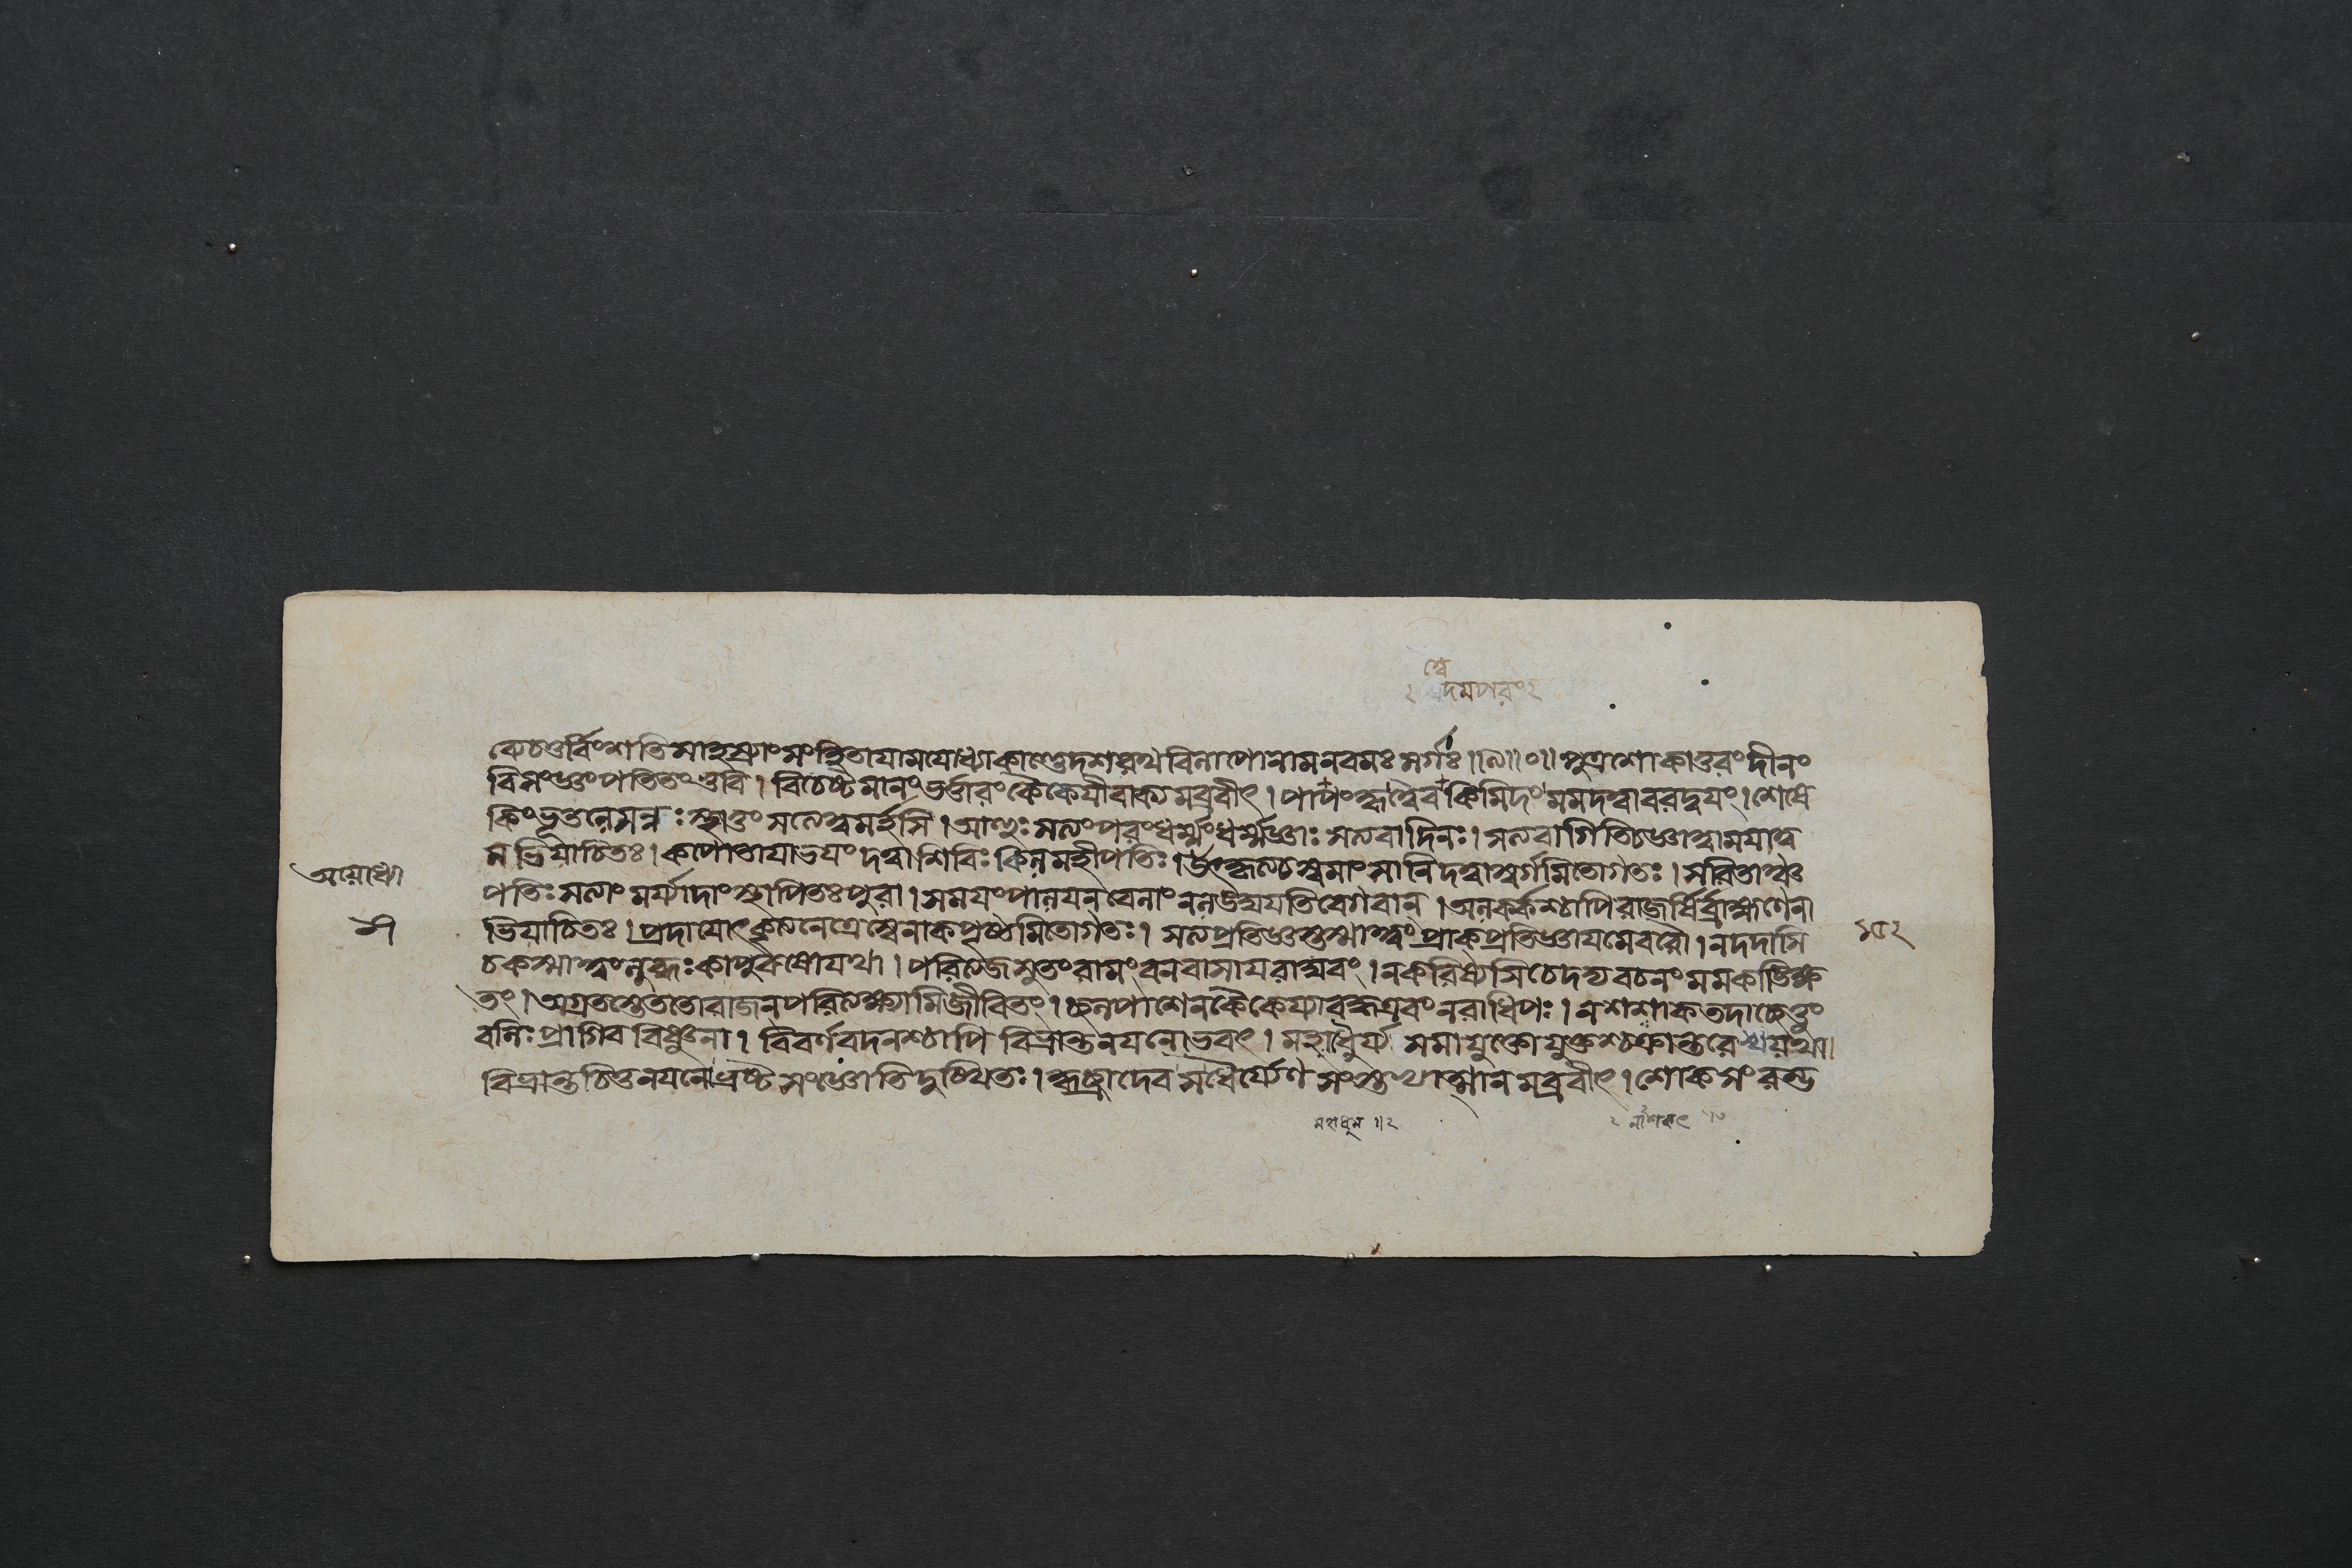 কেচতুর্বিংশতিসাহস্র্যাংসংহিতাযামযোধ্যাকাণ্ডেদশরথবিলাপোনামনবমঃসর্গঃ॥৯॥০॥পুত্রশোকাতুরংদীনং
বিসংজ্ঞংপতিতংভুবি। বিচেষ্টমানংভর্ত্তারংকৈকেযীবাক্যমব্রবীৎ। পাপংকৃত্বৈবকিমিদংমমদত্বাবরদ্বযং।শেষে
কিংভূতলেসন্নঃস্থাতুংসত্যেত্বমর্হসি।আহুঃসত্যংপরংধর্ম্মংধর্ম্মজ্ঞাঃসত্যবাদিনঃ।সত্যবাগিতিচজ্ঞাত্বামযাত্ব
মভিযাচিতঃ।কপোতাযাভযংদত্বাশিবিঃকিলমহীপতিঃ।উৎকৃত্যচস্বমাংসানিদত্বাস্বর্গমিতোগতঃ।সরিতাঞ্চ
পতিঃসত্যাংমর্য্যাদাংস্থাপিতঃপুরা।সমযংপালযন্বেলাংনলঙ্ঘযতিবেগবান্।অলর্কশ্চাপিরাজর্ষির্ব্রাহ্মণেনা
ভিযাচিতঃ।প্রদাযোৎকৃত্যনেত্রেস্বেনাকপৃষ্ঠমিতোগতঃ।সত্যপ্রতিজ্ঞস্তস্মাত্ত্বংপ্রাক্প্রতিজ্ঞাযমেবরৌ।নদদাসি
চকস্মাত্ত্বংলুব্ধঃকাপুরুষোযথা।পরিত্যজসুতংরামংবনবাসাযরাঘবং।নকরিষ্যসিচেদদ্যবচনংমমকাঙ্ক্ষি
তং।অগ্রতস্তেততোরাজন্পরিত্যক্ষ্যামিজীবিতং।ছলপাশেনকৈকেয্যাবদ্ধএবংনরাধিপঃ।নশশাকতদাচ্ছেত্তুং
বলিঃপ্রাগিববিষ্ণুনা। বিবর্ণবদনশ্চাপি বিভ্রান্তনযনোভবৎ। মহাধুর্য্য সমাযুক্তোযুক্তশ্চক্রান্তরে
বিভ্রান্তচিত্তনযনোভ্রষ্টসংজ্ঞোতিদুঃখিতঃ।কৃচ্ছ্রাদেবসধৈর্য্যেণ সংস্তভ্যাত্মানমব্রবীৎ।শোকসংরক্ত
অযোধ্যা
১৫২